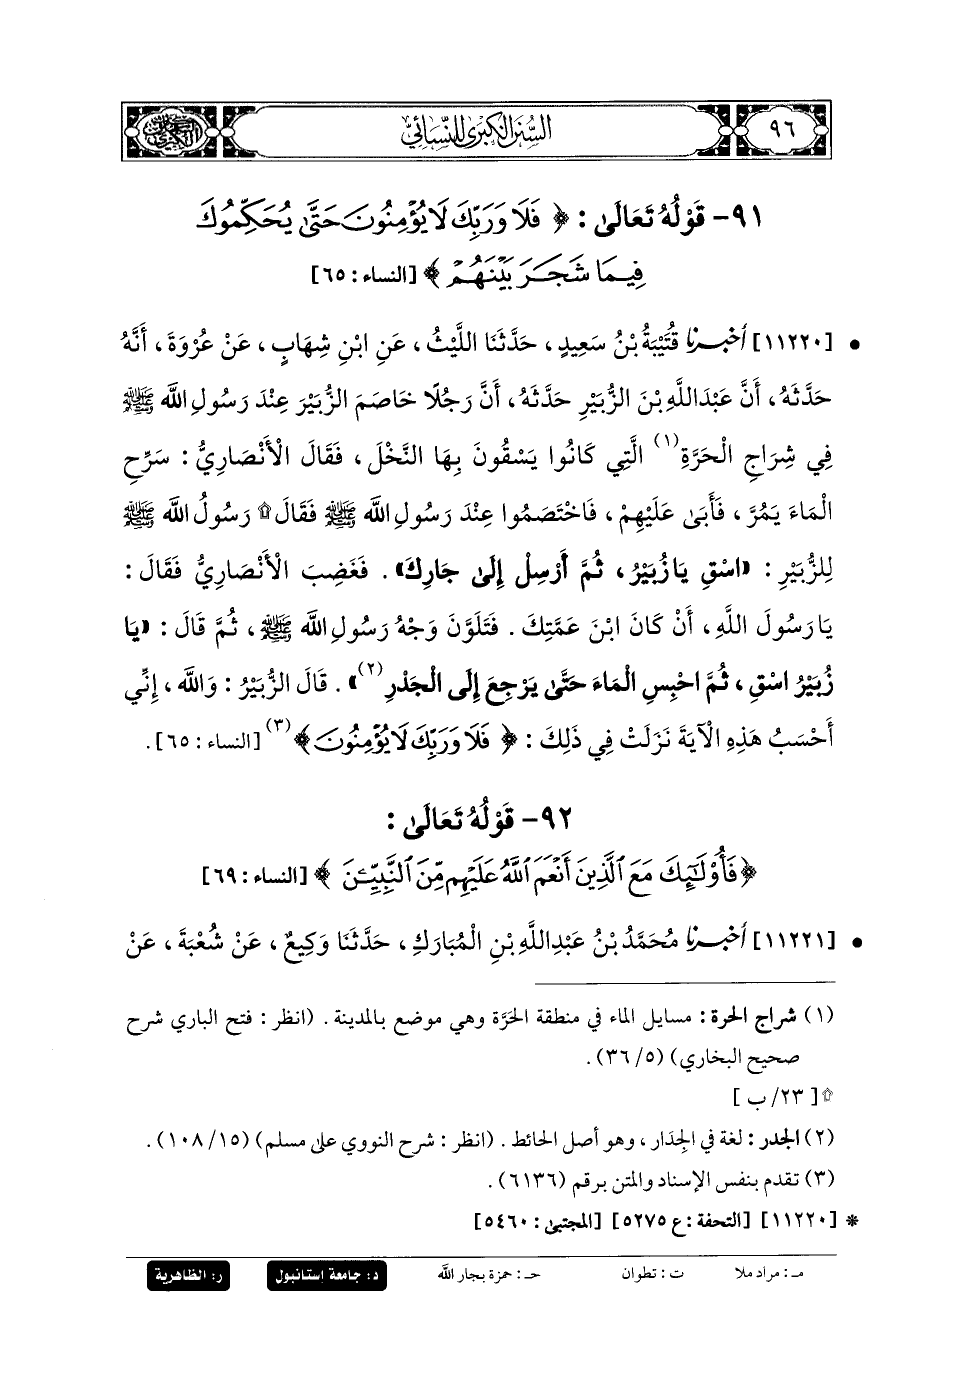 ٩٦
السنن الكبرى للنسائي
٩١- قَوْلُهُ تَعَالَىٰ : ﴿ فَلَا وَرَبِّكَ لَا يُؤْمِنُونَ حَتَّىٰ يُحَكِّمُوكَ
فِيمَا شَجَرَ بَيْنَهُمْ ﴾ [النساء : ٦٥]
• [١١٢٢٠] أَخْبَرَنَا قُتَيْبَةُ بْنُ سَعِيدٍ ، حَدَّثَنَا اللَّيْثُ ، عَنِ ابْنِ شِهَابٍ ، عَنْ عُرْوَةَ ، أَنَّهُ
حَدَّثَهُ ، أَنَّ عَبْدَاللَّهِ بْنَ الزُّبَيْرِ حَدَّثَهُ ، أَنَّ رَجُلًا خَاصَمَ الزُّبَيْرَ عِنْدَ رَسُولِ اللَّه ﷺ
فِي شِرَاجِ الْحَرَّةِ (١) الَّتِي كَانُوا يَسْقُونَ بِهَا النَّخْلَ ، فَقَالَ الْأَنْصَارِيُّ : سَرِّحِ
الْمَاءَ يَمُرَّ ، فَأَبَىٰ عَلَيْهِمْ ، فَاخْتَصَمُوا عِنْدَ رَسُولِ اللَّه ﷺ فَقَالَ۩ رَسُولُ اللَّه ﷺ
لِلزُّبَيْرِ : «اسْقِ يَا زُبَيْرُ ، ثُمَّ أَرْسِلْ إِلَىٰ جَارِكَ» . فَغَضِبَ الْأَنْصَارِيُّ فَقَالَ :
يَا رَسُولَ اللَّهِ ، أَنْ كَانَ ابْنَ عَمَّتِكَ . فَتَلَوَّنَ وَجْهُ رَسُولِ اللَّه ﷺ ، ثُمَّ قَالَ : «يَا
زُبَيْرُ اسْقِ ، ثُمَّ احْبِسِ الْمَاءَ حَتَّىٰ يَرْجِعَ إِلَى الْجَدْرِ (٢)» . قَالَ الزُّبَيْرُ : وَاللَّه ، إِنِّي
أَحْسَبُ هَذِهِ الْآيَةَ نَزَلَتْ فِي ذَلِكَ : ﴿ فَلَا وَرَبِّكَ لَا يُؤْمِنُونَ ﴾ (٣) [النساء : ٦٥] .
٩٢- قَوْلُهُ تَعَالَىٰ :
﴿ فَأُوْلَٰٓئِكَ مَعَ ٱلَّذِينَ أَنْعَمَ ٱللَّهُ عَلَيْهِم مِّنَ ٱلنَّبِيِّـۧنَ ﴾ [النساء : ٦٩]
• [١١٢٢١] أَخْبَرَنَا مُحَمَّدُ بْنُ عَبْدِاللَّهِ بْنِ الْمُبَارَكِ ، حَدَّثَنَا وَكِيعٌ ، عَنْ شُعْبَةَ ، عَنْ
(١) شراج الحرة : مسايل الماء في منطقة الحَرَّة وهي موضع بالمدينة . (انظر : فتح الباري شرح
صحيح البخاري) (٣٦/٥) .
۩ [ ٢٣/ ب ]
(٢) الجدر : لغة في الجِدَار ، وهو أصل الحائط . (انظر : شرح النووي على مسلم) (١٠٨/١٥) .
(٣) تقدم بنفس الإسناد والمتن برقم (٦١٣٦) .
* [١١٢٢٠] [التحفة : ع ٥٢٧٥] [المجتبى : ٥٤٦٠]
مـ : مراد ملا ت : تطوان حـ : حمزة بجار اللَّه د : جامعة إستانبول ر : الظاهرية